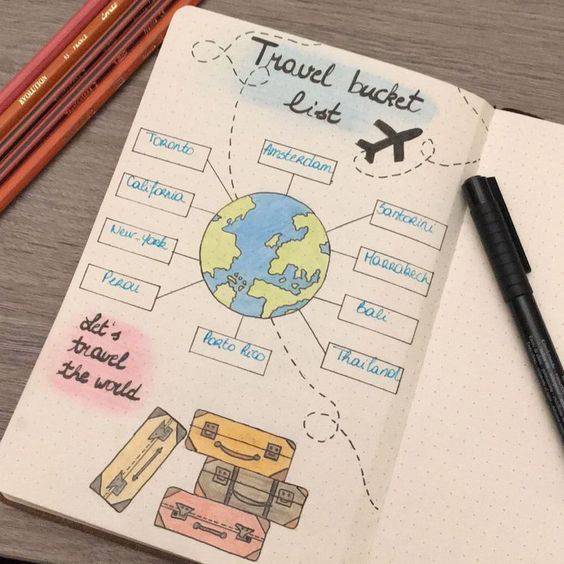 Travel bucket
list
Toronto
Amsterdam
California
Santorini
New-York
Marrakech
Perou
Bali
Porto Rico
Thailand
Let's
travel
the world
EVOLUTION